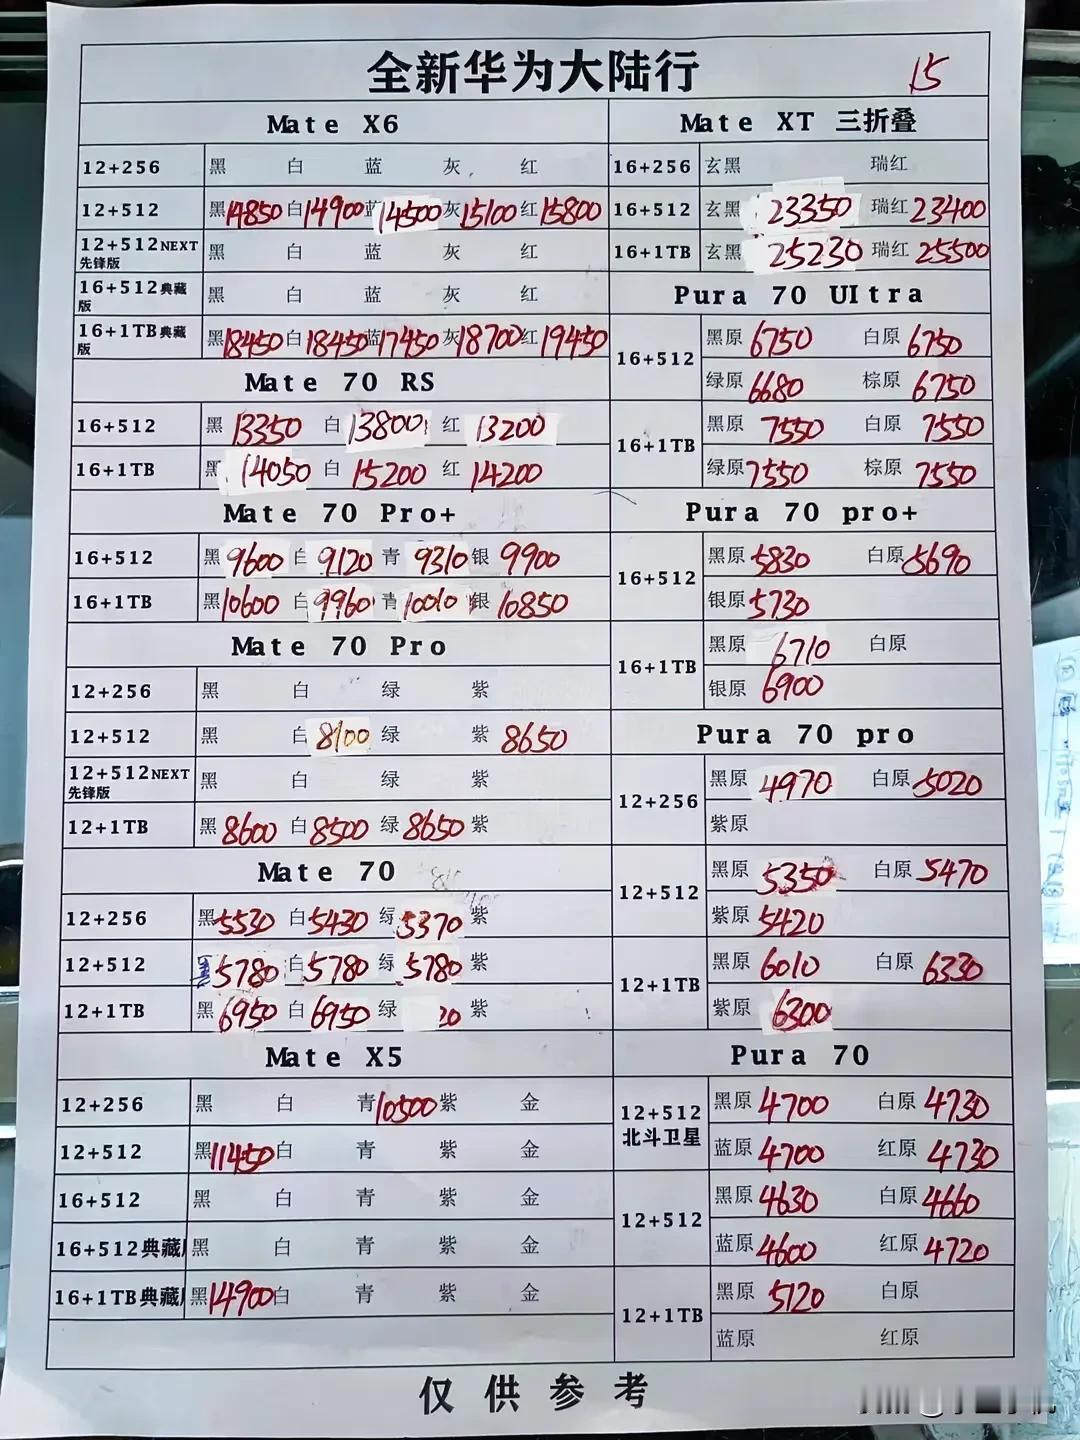 全新华为大陆行 15
Mate X6
12+256 黑 白 蓝 灰 红
12+512 黑14850 白14900 蓝14500 灰15100 红15800
12+512NEXT先锋版 黑 白 蓝 灰 红
16+512典藏版 黑 白 蓝 灰 红
16+1TB典藏版 黑18450 白18450 蓝17450 灰18700 红19450
Mate 70 RS
16+512 黑 13350 白 13800 红 13200
16+1TB 黑 14050 白 15200 红 14200
Mate 70 Pro+
16+512 黑 9600 白 9120 青 9310 银 9900
16+1TB 黑10600 白9960 青10010 银 10850
Mate 70 Pro
12+256 黑 白 绿 紫
12+512 黑 白8100 绿 紫 8650
12+512NEXT先锋版 黑 白 绿 紫
12+1TB 黑 8600 白8500 绿 8650 紫
Mate 70
12+256 黑5530 白5430 绿5370 紫
12+512 黑5780 白5780 绿5780 紫
12+1TB 黑6950 白6950 绿 20 紫
Mate X5
12+256 黑 白 青10500 紫 金
12+512 黑11450 白 青 紫 金
16+512 黑 白 青 紫 金
16+512典藏 黑 白 青 紫 金
16+1TB典藏 黑14900 白 青 紫 金
Mate XT 三折叠
16+256 玄黑 瑞红
16+512 玄黑 23350 瑞红23400
16+1TB 玄黑 25230 瑞红25500
Pura 70 UItra
16+512 黑原 6750 白原 6750
绿原 6680 棕原 6750
16+1TB 黑原 7550 白原 7550
绿原7550 棕原 7550
Pura 70 pro+
16+512 黑原5830 白原5690
银原5730
16+1TB 黑原 6710 白原
银原 6900
Pura 70 pro
12+256 黑原 4970 白原5020
紫原
12+512 黑原 5350 白原5470
紫原5420
12+1TB 黑原 6010 白原 6330
紫原 6300
Pura 70
12+512北斗卫星 黑原4700 白原4730
蓝原4700 红原4730
12+512 黑原4630 白原4660
蓝原4600 红原4720
12+1TB 黑原 5120 白原
蓝原 红原
仅供参考